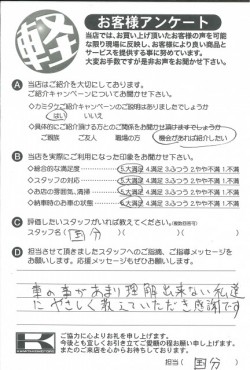 軽
お客様アンケート
当店では、お買い上げ頂いたお客様の声を可能
な限り現場に反映し、お客様により良い商品と
サービスを提供する事に努めています。
大変お手数ですが是非お声をお聞かせ下さい。
A 当店はご紹介を大切にしております。
ご紹介キャンペーンについてお聞かせ下さい。
◇カミタケご紹介キャンペーンのご説明はありましたでしょうか
はい いいえ
◇具体的にご紹介頂ける方とのご関係をお聞かせ頂けますでしょうか
ご親族 ご友人 職場の方 機会があれば紹介したい
B 当店を実際にご利用になった印象をお聞かせ下さい。
◇総合的な満足度 5.大満足 4.満足 3.ふつう 2.やや不満 1.不満
◇スタッフの対応 5.大満足 4.満足 3.ふつう 2.やや不満 1.不満
◇お店の雰囲気、清掃 5.大満足 4.満足 3.ふつう 2.やや不満 1.不満
◇納車時のお車の状態 5.大満足 4.満足 3.ふつう 2.やや不満 1.不満
C 評価したいスタッフがいれば教えてください。(複数回答可)
スタッフ名( 国分 )( )( )
D 担当させて頂きましたスタッフへのご指摘、ご指導メッセージを
お願いします。応援メッセージもぜひお願いします。
車の事があまり理解出来ない私達
にやさしく教えていただき感謝です
ご協力に心よりお礼を申し上げます。
今後とも宜しくお引き立てご愛顧の程お願い申し上げます。
またのご来店を心からお待ちしております。
担当( 国分 )